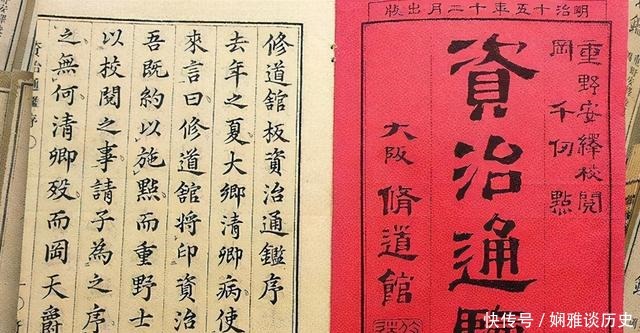 明治十五年十二月出版
重野安繹校閱
岡千仞點
資治通
大阪 脩道館
修道舘板資治通鑑序
去年之夏大卿清卿病使
來言曰修道舘將印資治
吾既約以施點而重野士
以校閱之事請子為之序
之無何清卿歿而岡天爵
資治通鑑序
快传号/娴雅谈历史